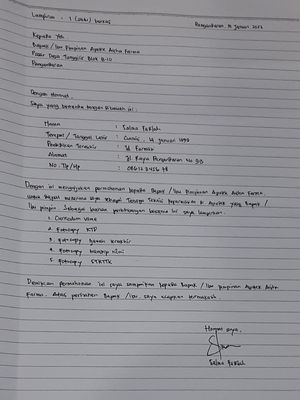 Lampiran : 1 (satu) berkas
Pangandaran, 14 Januari 2022
Kepada Yth
Bapak / Ibu Pimpinan Apotek Aisha Farma
Pasar Desa Blok B-10
Pangandaran
Dengan Hormat,
Saya yang bertanda tangan dibawah ini :
Nama : Salwa
Tempat / Tanggal Lahir : Ciamis, 14 Januari 1999
Pendidikan Terakhir : D3 Farmasi
Alamat : Jl. Raya Pangandaran No
No. Tlp / Hp :
Dengan ini mengajukan permohonan kepada Bapak / Ibu Pimpinan Apotek Aisha Farma.
Untuk dapat Tenaga Teknis Kefarmasian di Apotek yang Bapak /
Ibu pimpin. Sebagai bahan pertimbangan bersama ini saya lampirkan :
1. Curiculum Vitae
2. Fotocopy KTP
3. Fotocopy Ijazah terakhir
4. Fotocopy transkip nilai
5. Fotocopy STRTTK
Demikian permohonan ini saya sampaikan kepada Bapak / Ibu Pimpinan Apotek Aisha
Farma. Atas perhatian Bapak / Ibu, saya ucapkan terimakasih.
Hormat saya,
Salwa